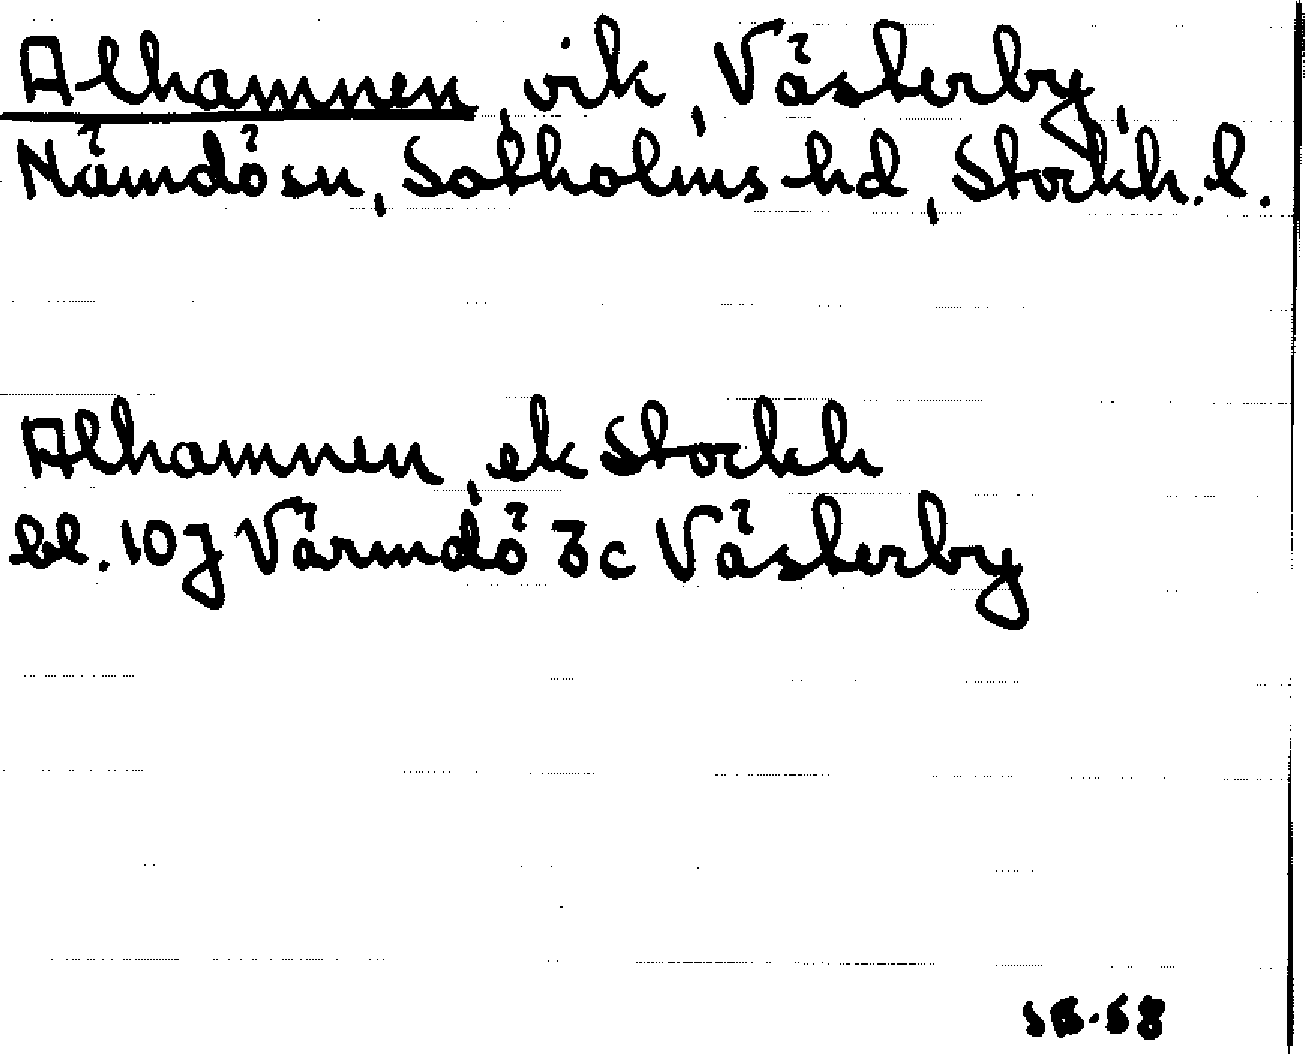 Alhamnen, vik, Västerby,
Nämdö sn, Sotholms hd, Stockh. l.
Alhamnen, ek Stockh
bl. 10J Värmdö 3c Västerby